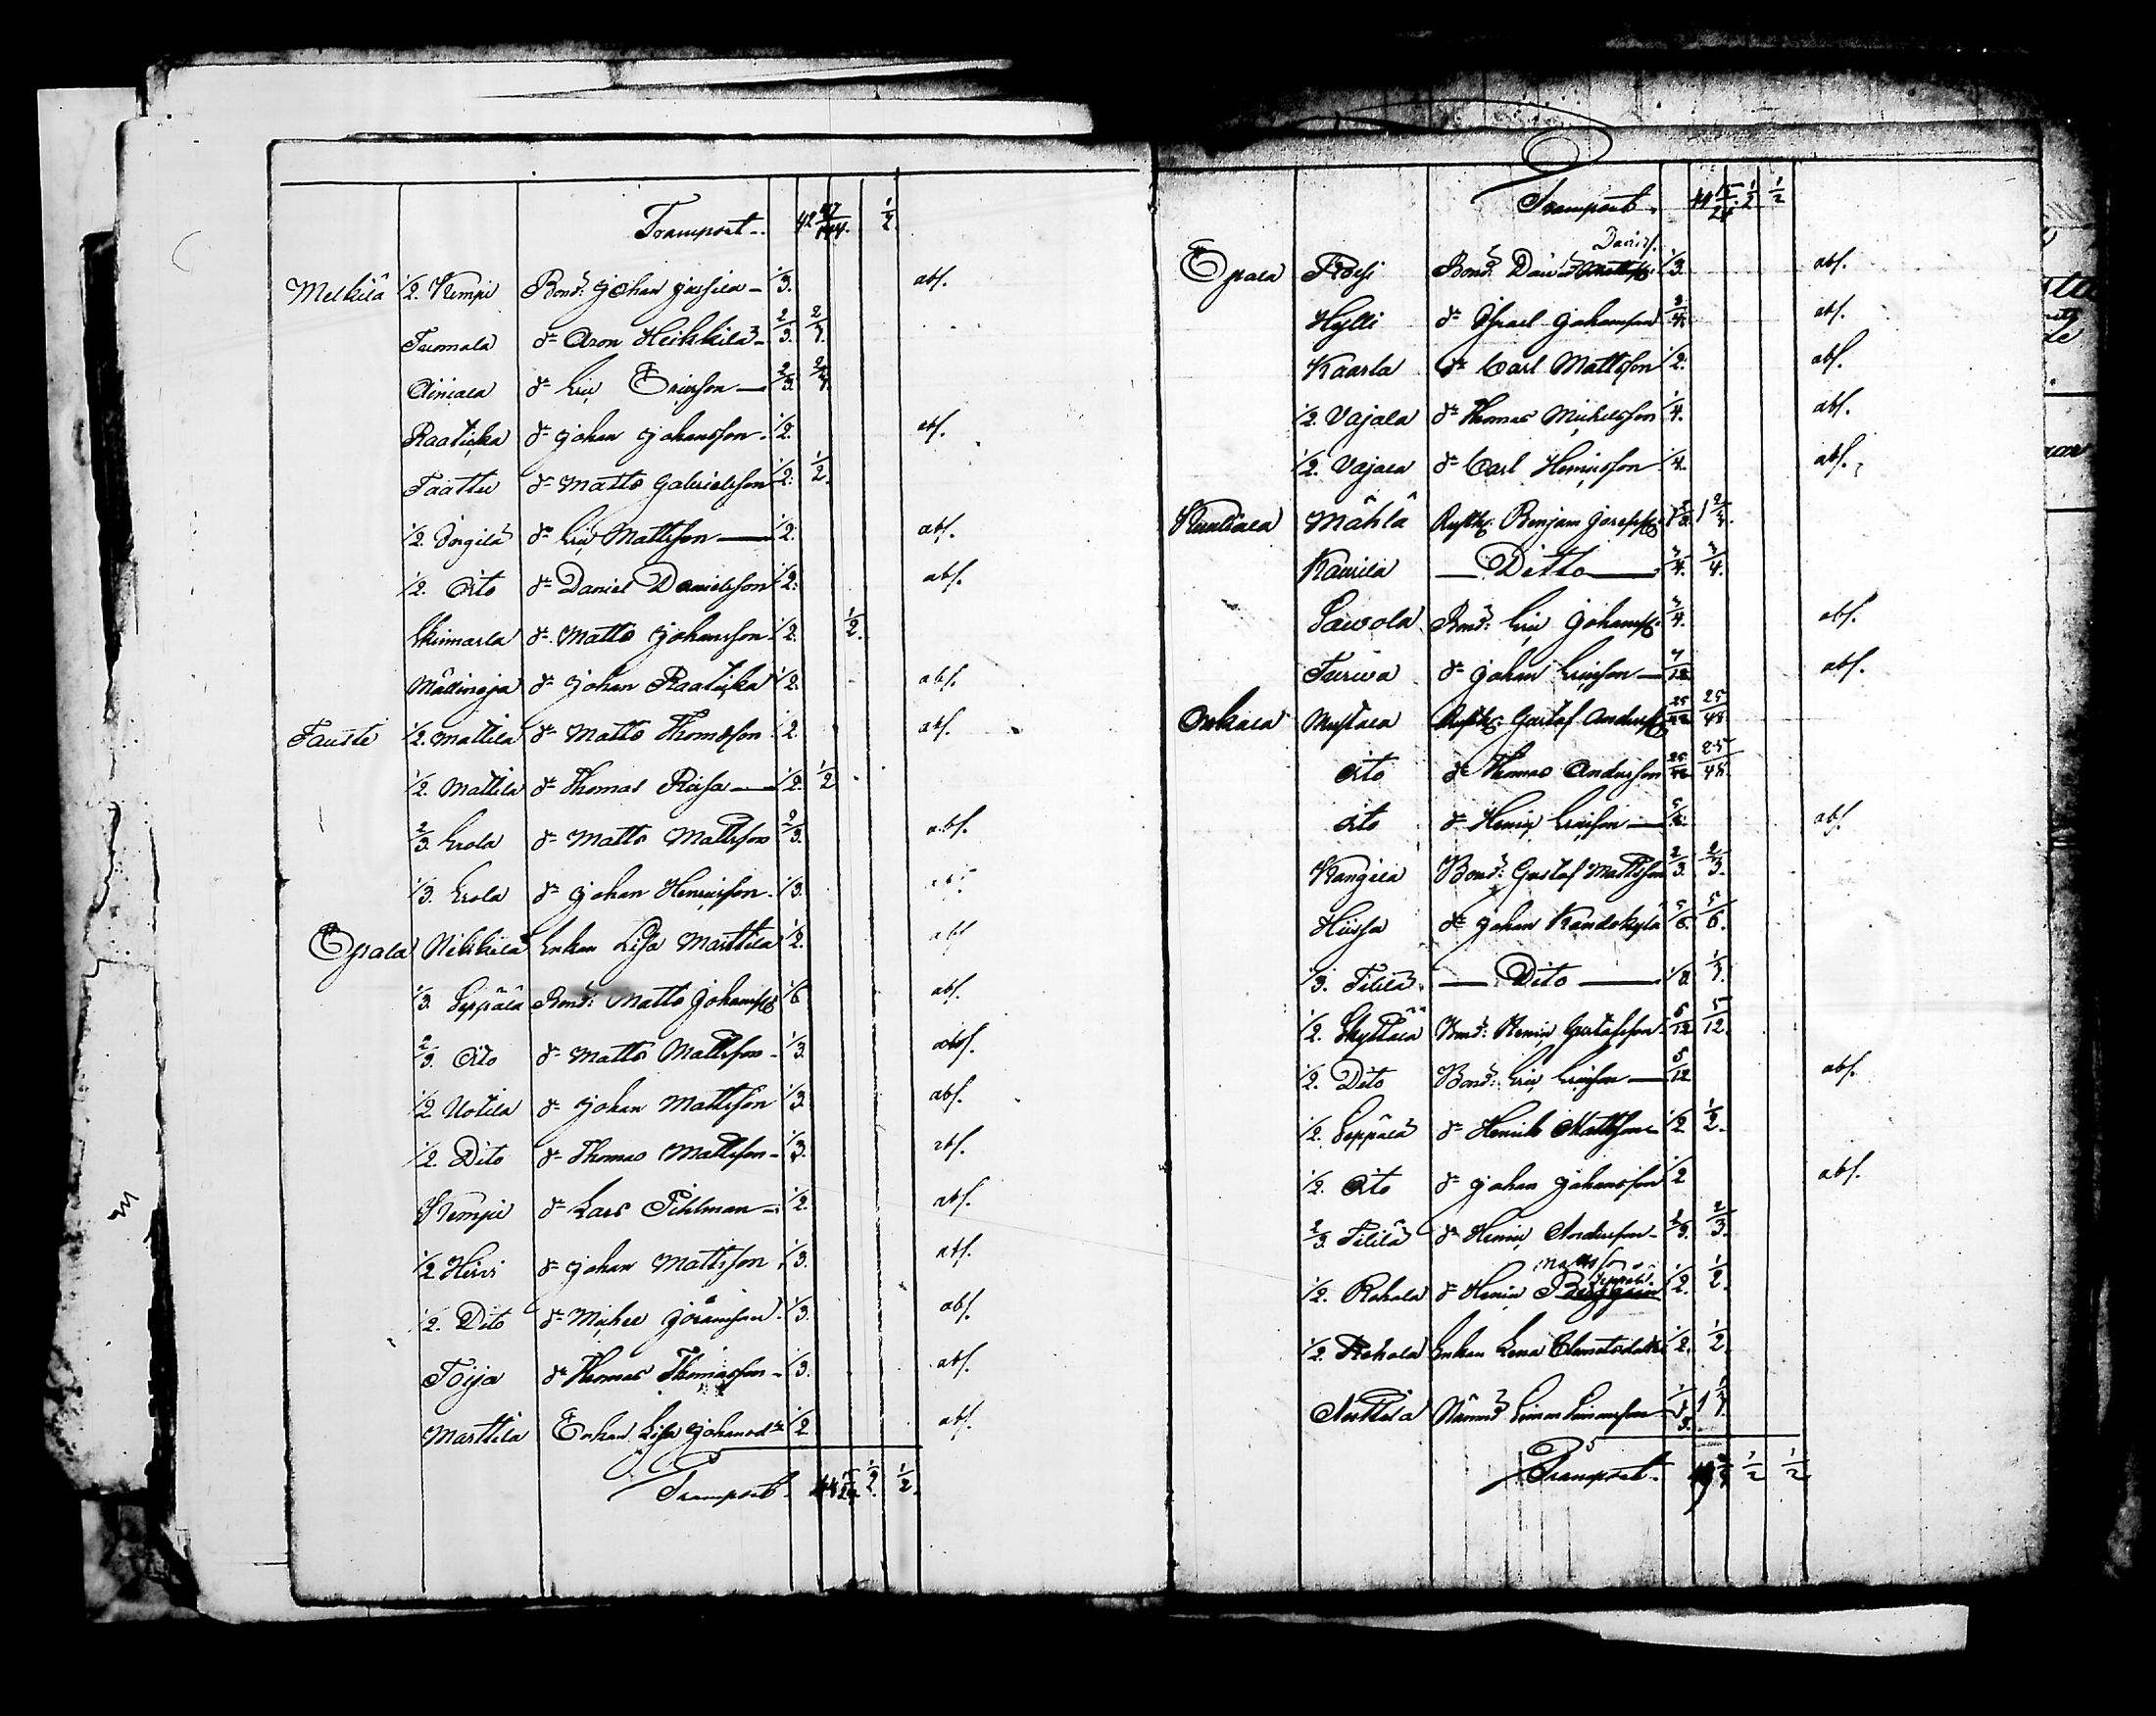 Transport. 42 47/144. 1/2.
Melkilä 1/2. Kempi Bond: Johan Jussila 1/3. abs.
Tuomola d:o Aron Heikkilä 2/3. 2/3.
Äiniälä d:o Eric Ericsson 2/3. 2/3.
Raaticka d:o Johan Johansson 1/2. abs.
Taattu d:o Matts Gabrielsson 1/2. 1/2.
1/2. d:o Eric Mattsson 1/2. abs.
1/2. dito d:o Daniel Danielsson 1/2. abs.
Skinnarla d:o Matts Johansson 1/2. 1/2.
Mällinoja d:o Johan Raaticka 1/2. abs.
Tauste 1/2. Mattila d:o Matts Thomsson 1/2. abs.
1/2. Mattila d:o Thomas 1/2. 1/2
2/3. Erola d:o Matts Mattsson 2/3. abs.
1/3. Erola d:o Johan Henricsson 1/3. abs.
Orala Nikkilä Enkan Lisa Marttila 1/2. abs
1/3. Seppälä Bond: Matts Johanss: 1/6 abs.
2/3. dito d:o Matts Mattsson 1/3. abs.
1/2 Uotila d:o Johan Mattsson 1/3. abs.
1/2. Dito d:o Thomas Mattsson 1/3. abs.
Kempi d:o Lars Pihlman 1/2. abs.
1/2 Hirvi d:o Johan Mattsson 1/3. abs.
1/2. Dito d:o Michel Göransson 1/3. abs.
Töija d:o Thomas Thomasson 1/3. abs.
Marttila Enkan Lisa Johansd:r 1/2 abs.
Transport. 1/2. 1/2.
Transport. 1/2 1/2
Davids.
Orala Rossi Bond: David 1/3. abs.
Hylli d:o Israel Johansson 3/4. abs.
Kaarla d:o Carl Mattsson 1/2. abs.
1/2. Vajala d:o Thomas Michelsson 1/4. abs.
1/2. Vajala d:o Carl Henricsson 1/4. abs.
Mähla Rusth: Benjam Josephss: 1 2/3. 1 2/3.
Kaurila Ditto 3/4. 3/4.
Sawola Bond: Eric Johanss: 3/4. abs.
Turwa d:o Johan Ericsson 7/12 abs.
Onkala Mustala Rusth: Gustaf Anderss: 25/48 25/48
dito d:o Thomas Andersson 25/48 25/48
dito d:o Henric Ericsson abs.
Kangila Bond: Gustaf Mattsson 2/3. 2/3.
Hiissa d:o Johan Kändskylä 5/6. 5/6.
1/3. Tililä Dito 1/3. 1/3.
1/2. Skyttälä Bond: Henric Gustafsson 5/12 5/12.
1/2. Dito Bond: Eric Ericsson 5/12 abs.
1/2. Seppälä d:o Henrik Mattsson 1/2 1/2.
1/2. dito d:o Johan Johansson 1/2 abs.
2/3. Tililä d:o Henric Andersson 2/3. 2/3.
Mattsson
1/2. Rekola d:o Henric 1/2. 1/2.
1/2. Rekola Enkan Lena Clemetsdotter 1/2. 1/2.
Anttila Nämnd: Simon Simonsson 1 1/3. 1 1/3.
Transport. 1/2 1/2